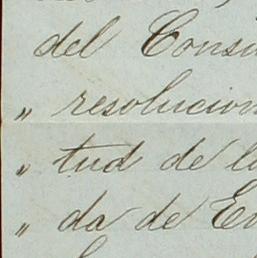 del Consi
" resolucion
" tud de l
" da de E